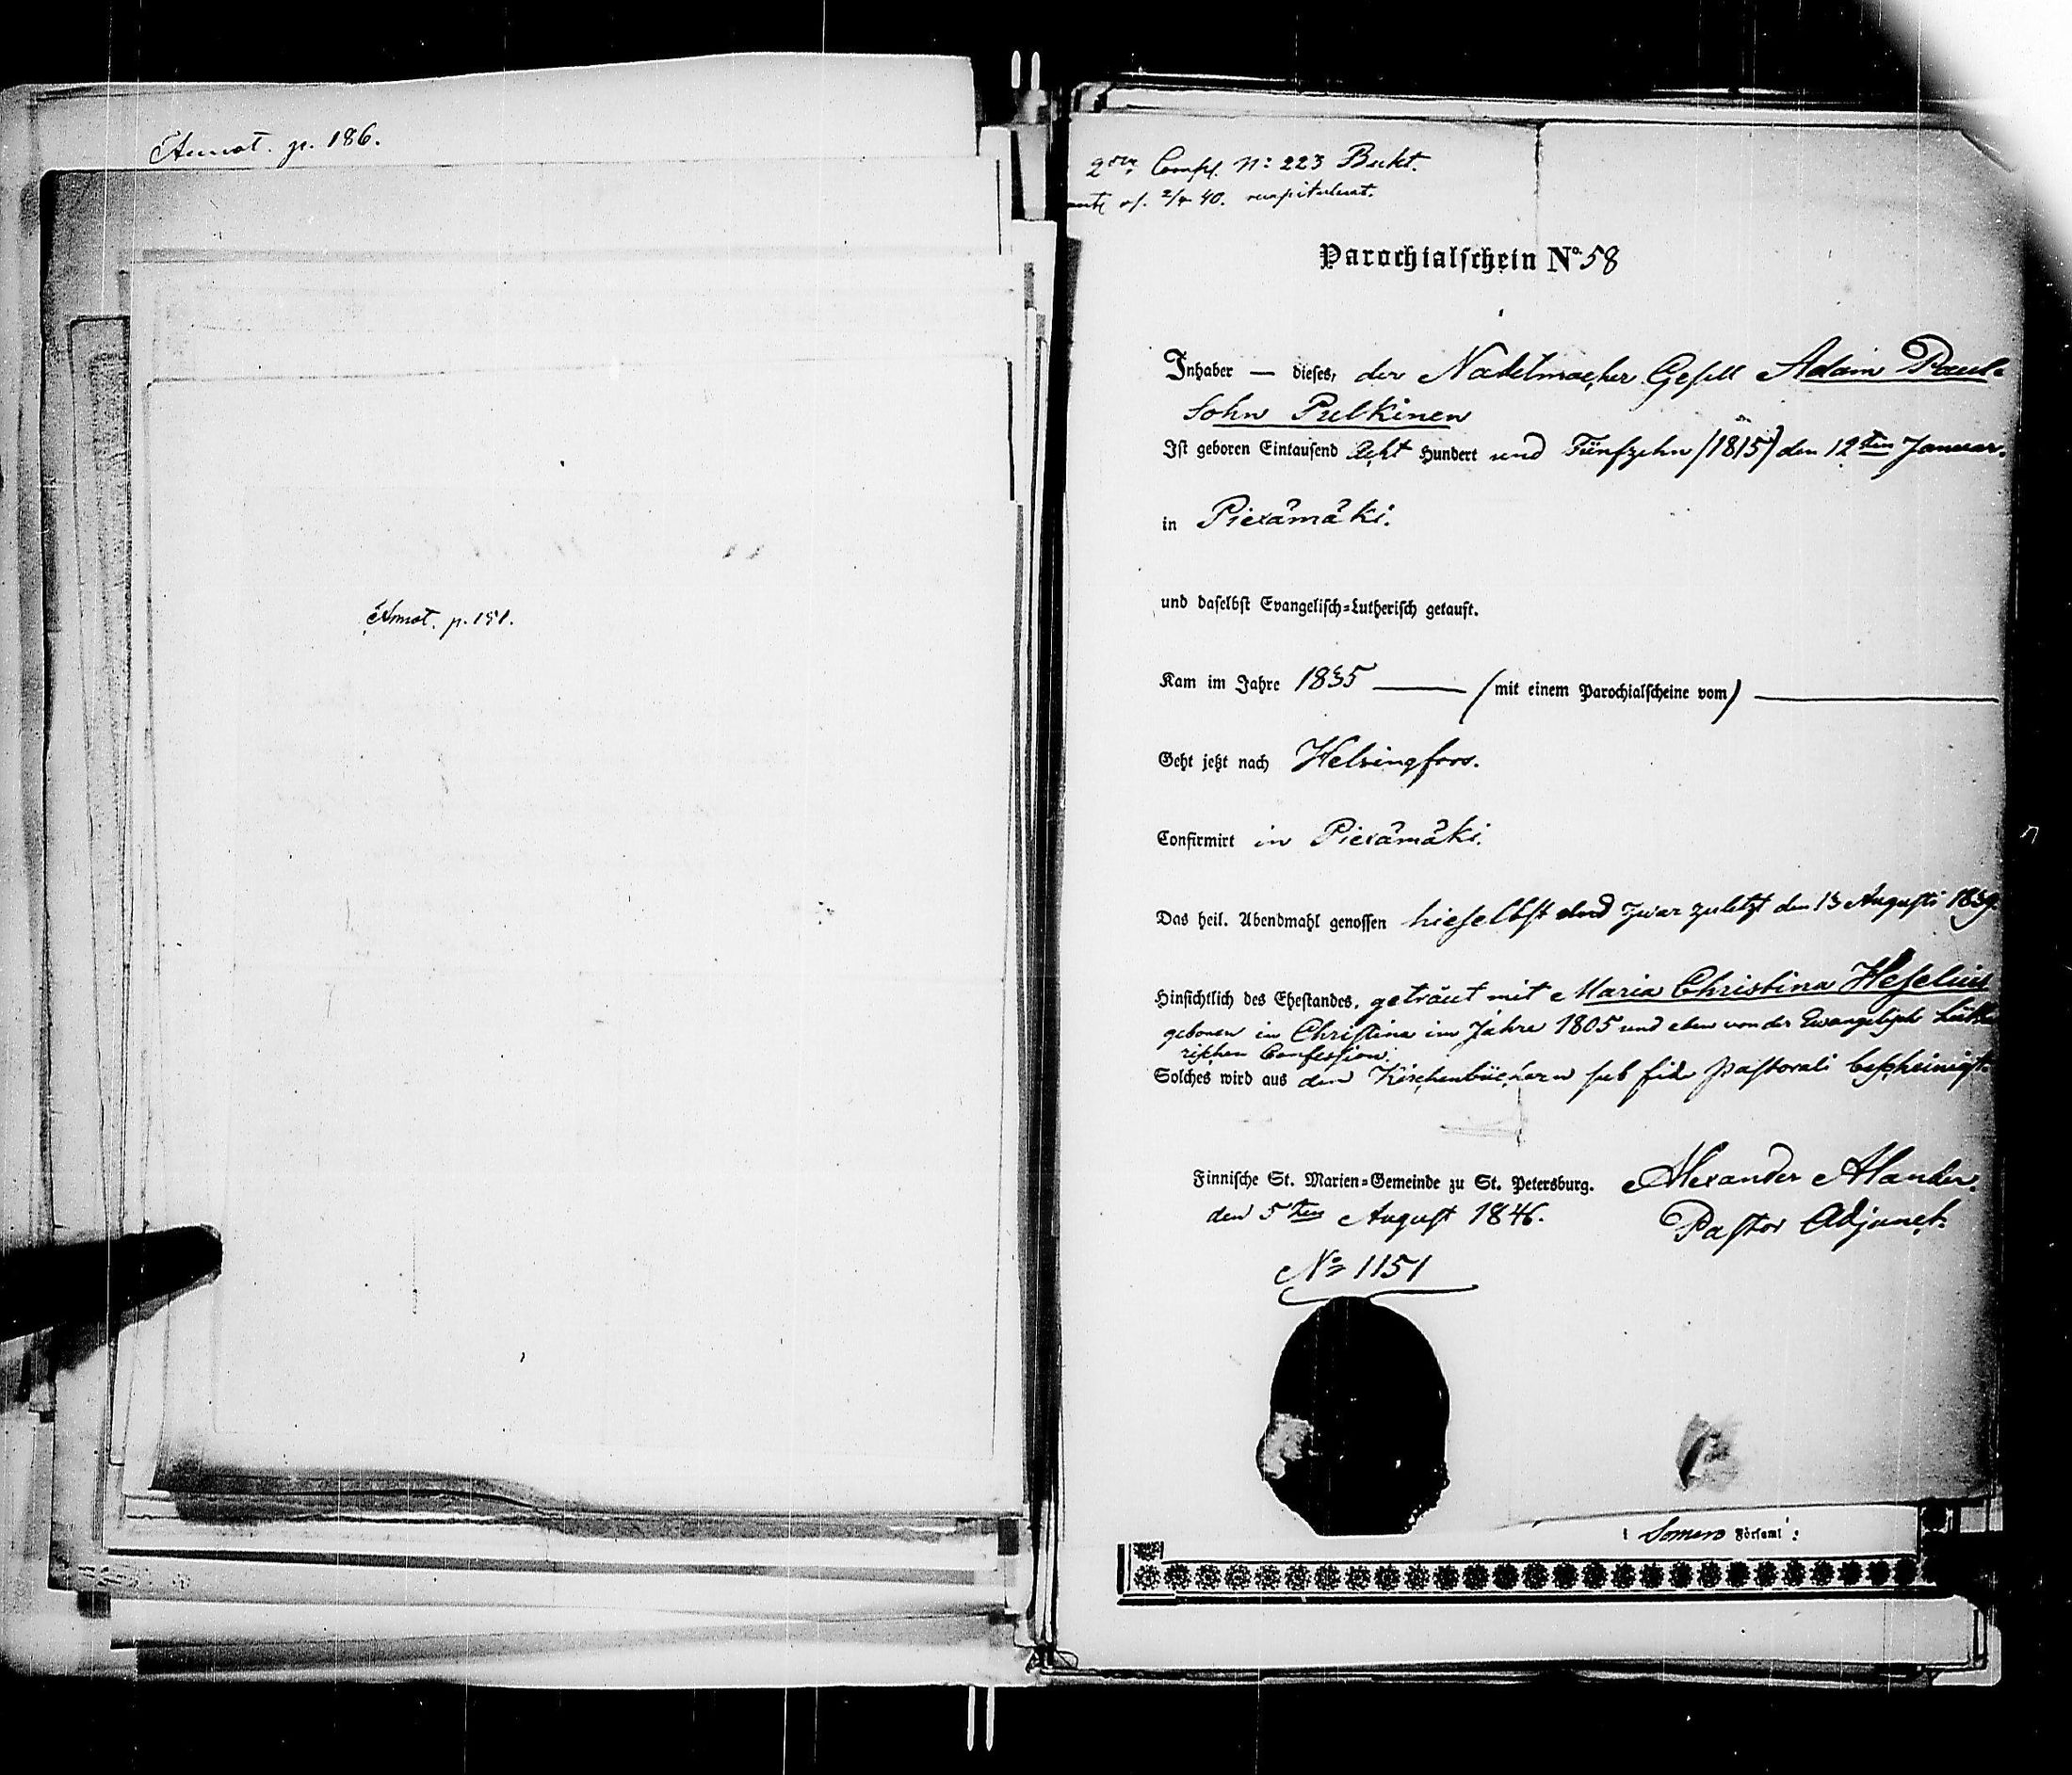 Annot. p. 186.
Annot. p. 151.
Compl. No: 223 Bukt.
40.
Parochialschein No. 58
Inhaber — dieses, der Nadelmacher Gesell Adam Paul-
Sohn Pulkinen
Ist geboren Eintausend Acht Hundert und Fünfzehn (1815) den 12ten Januar.
in Piexämäki.
und daselbst Evangelisch-Lutherisch getauft.
Kam im Jahre 1835 —— (mit einem Parochialscheine vom) ——
Geht jetzt nach Helsingfors.
Confirmirt in Piexämäki.
Das heil. Abendmahl genossen hieselbst und zwar zuletzt den 13 Augusti 1839.
Hinsichtlich des Ehestandes, getraut mit Maria Christina Heselius
geboren in Christina im Jahre 1805 und eben von der Evangelisch Luthe
rischen Confession.
Solches wird aus den Kirchenbüchern sub fide pastorali bescheinigt.
Finnische St. Marien-Gemeinde zu St. Petersburg. Alexander Alander.
den 5ten August 1846. Pastor Adjunct.
No 1151
i Somero Församl: